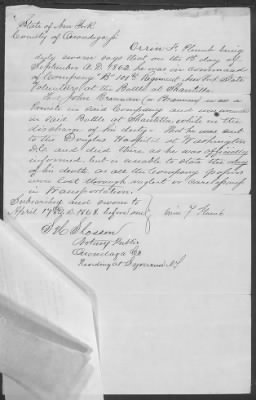 State of New York
County of Onondaga
Orrin F. Plumb being
duly sworn says that on the 1st day of
September A.D. 1862, he was in command
of Company "B" 101st Regiment New York State
Volunteers at the Battle at Chantilla.
That John Brannan (or Brannon) was a
Private in said Company and was wound
in said Battle at Chantilla, while in the
discharge of his duty. That he was sent
to the Douglas Hospital at Washington
D.C. and died there as he was officially
informed, but is unable to state the day
of his death as all the Company papers
were lost through neglect or carelessness
in transportation.
Subscribed and sworn to
April 17th A.D. 1868. before me
Orrin F. Plumb
Slosson
Notary Public
Onondaga Co
Residing at Syracuse N.Y.